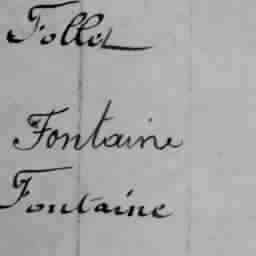 Follet
Fontaine
Fontaine